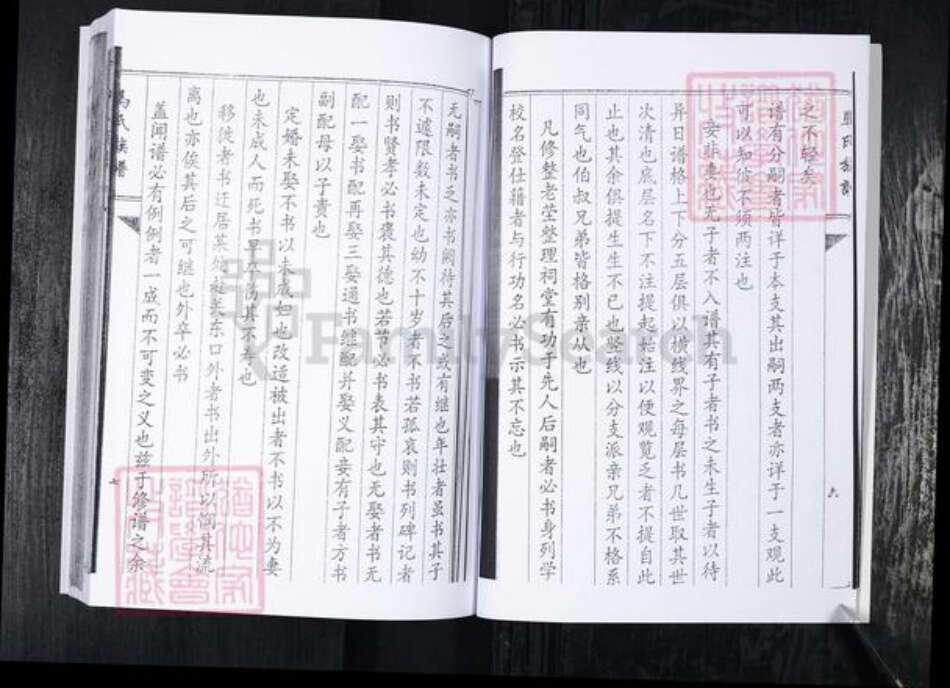 之不轻矣
谱有分嗣者皆详于本支其出嗣两支者亦详于一支观此
可以知彼不须两注也
妾非妻也无子者不入谱其有子者书之未生子者以待
异日谱格上下分五层俱以横线界之每层书几世取其世
次清也底层名下不注提起帖注以便观览乏者不提自此
止也其余俱提生生不已也竖线以分支派亲兄弟不格系
同气也伯叔兄弟皆格别亲从也
凡修整老茔整理祠堂有功于先人后嗣者必书身列学
校名登仕籍者与行功名必书示其不忘也
六
无嗣者书乏亦书阙待其后之或有继也年壮者虽书其子
不遽限数未定也幼不十岁者不书若孤哀则书列碑记者
则书贤孝必书褒其德也若节必书表其守也无娶者书无
配一娶书配再娶三娶通书继配并娶义配妾有子者方书
副配母以子贵也
定婚未娶不书以未成妇也改适被出者不书以不为妻
也未成人而死书早卒
其不寿也
移徙者书迁居某处
关东口外者书出外所以
其流
离也亦俟其后之可继也外卒必书
盖闻谱必有例例者一成而不可变之义也兹于修谱之余
氏族谱
七
FamilySearch